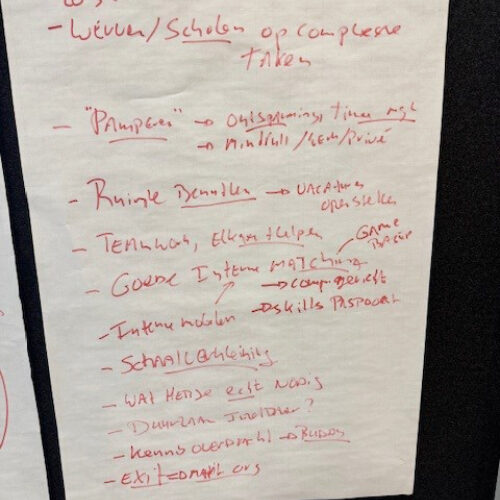 - Werven/Scholen op complexe
taken
- "Pamperen" → ontspanning, time mgt
→ Mindfull/Werk/Privé
- Ruimte Benutten → vacatures
openstellen
- Teamwork, Elkaar Helpen
GAME
BASED
- Goede Interne MATCHING
→ comp. gericht
- Interne mobiliteit → skills Paspoort
- Schaalverkleining
- Wat Heb je echt Nodig
- Duurzaam Inzetbaar?
- Kennis overdracht → Buddy
- Exit